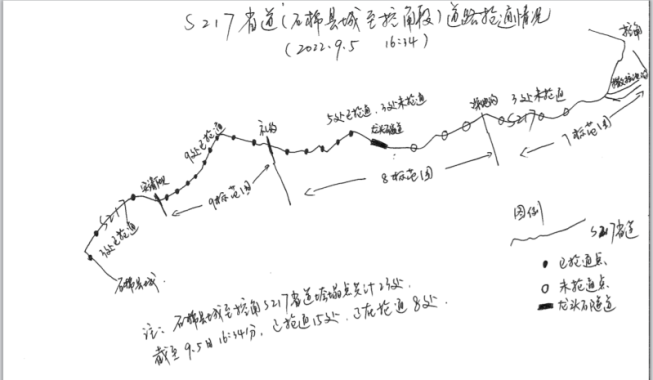 S217省道(石棉县城至挖角段)道路抢通情况
(2022.9.5 16:34)
挖角
5处已抢通,3处未抢通
3处未抢通
9处已抢通
S217
7标范围
8标范围
9标范围
S217
3处已抢通
石棉县城
图例
S217省道
已抢通点
未抢通点
龙头石隧道
注:石棉县城至挖角S217省道垮塌点共计23处.
截至9.5日16:34分,已抢通15处,正在抢通8处.